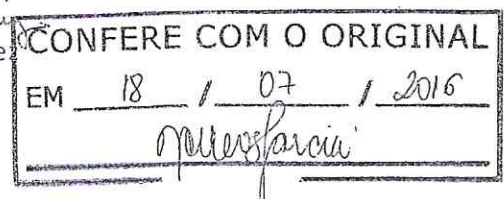 CONFERE COM O ORIGINAL
EM 18 / 07 / 2016
Garcia